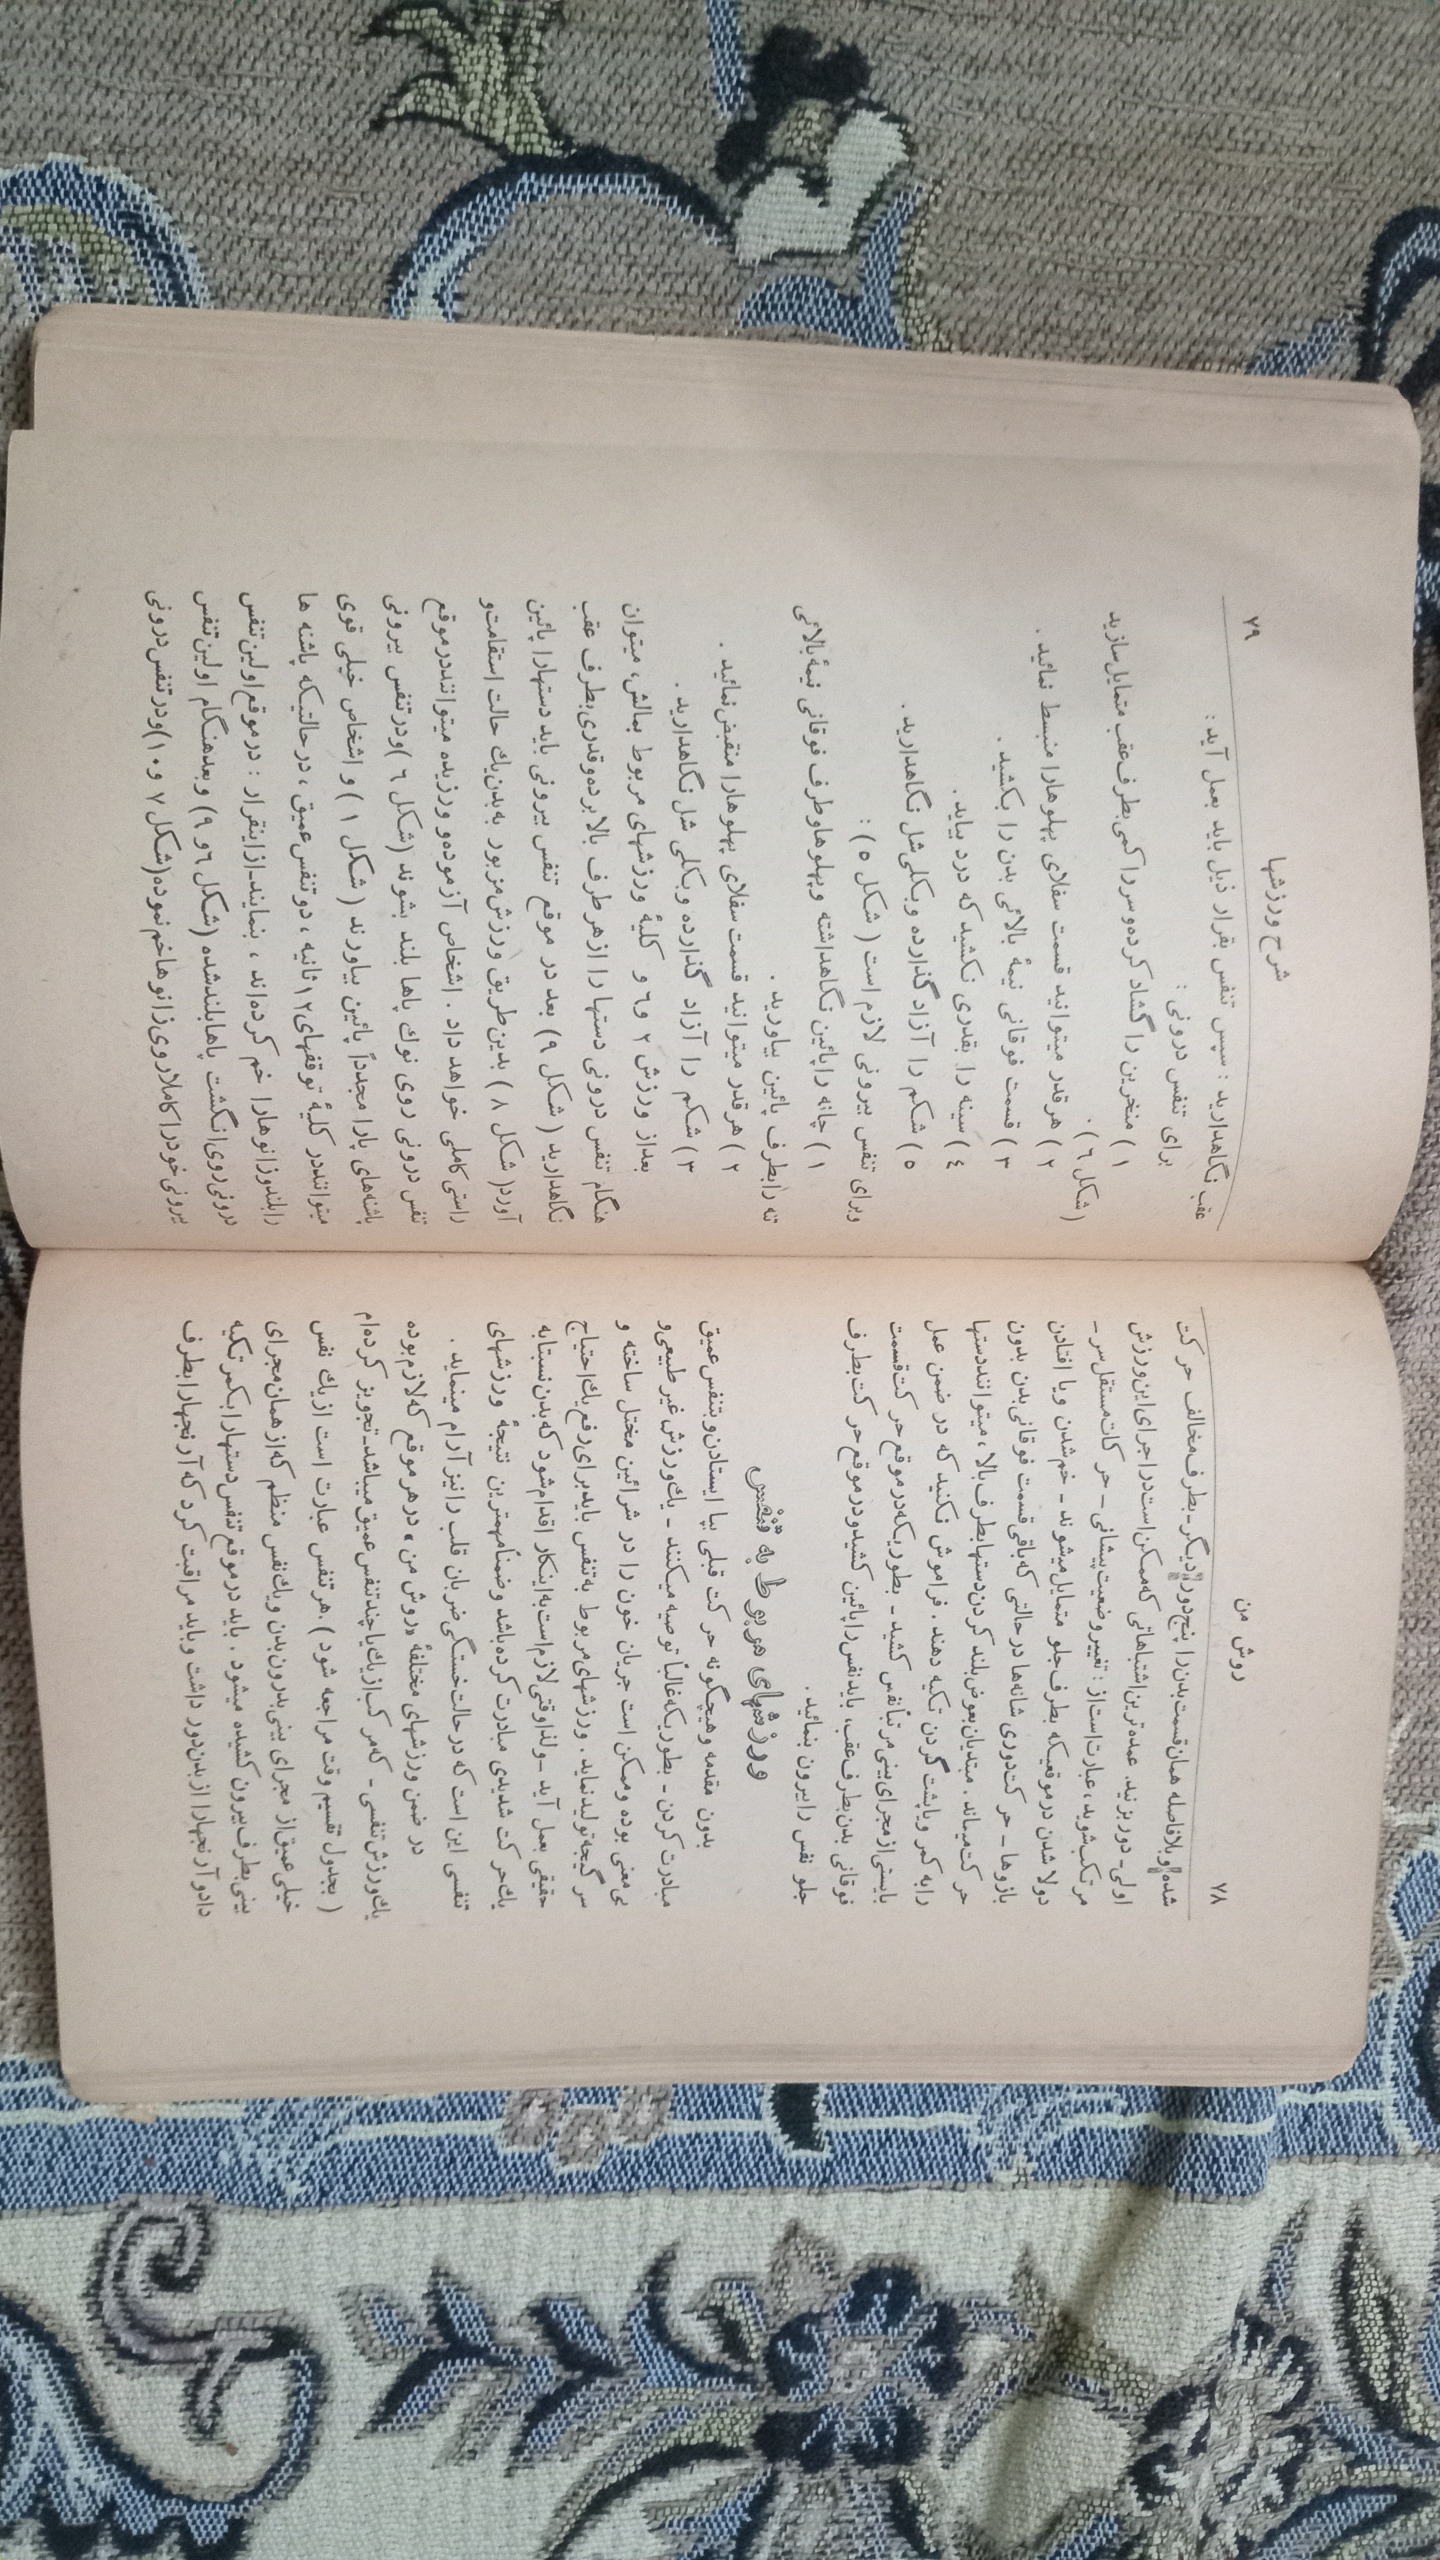 ۷۸
روش من
شده وبلافاصله همان قسمت بدن را پنج دور دیگر ـ بطرف مخالف حرکت
اولی ـ دور بزنید. عمده ترین اشتباهاتی که ممکن است در اجرای این ورزش
مرتکب شوید، عبارت است از : تغییر وضعیت پیشانی ـ حرکات مستقل سر ـ
دولا شدن در موقعیکه بطرف جلو متمایل میشوند ـ خم شدن ویا افتادن
بازوها ـ حرکت دوری شانه ها در حالتی که باقی قسمت فوقانی بدن بدون
حرکت میماند. مبتدیان بعوض بلند کردن دستها بطرف بالا، میتوانند دستها
را به کمر ویا پشت گردن تکیه دهند . فراموش نکنید که در ضمن عمل
بایستی از مجرای بینی مرتباً نفس کشید ـ بطوریکه در موقع حرکت قسمت
فوقانی بدن بطرف عقب، باید نفس را پائین کشید و در موقع حرکت بطرف
جلو نفس را بیرون بنمائید .
ورزشهای مربوط به تنفس
بدون مقدمه وهیچگونه حرکت قبلی بپا ایستادن و بتنفس عمیق
مبادرت کردن ـ بطوریکه غالباً توصیه میکنند ـ یك ورزش غیر طبیعی و
بی معنی بوده وممکن است جریان خون را در شرائین مختل ساخته و
سر گیجه تولید نماید . ورزشهای مربوط به تنفس باید برای رفع یك احتیاج
حقیقی بعمل آید ـ ولذا وقتی لازم است به اینکار اقدام شود که بدن نسبتا به
یك حرکت شدیدی مبادرت کرده باشد وضمناً مهمترین نتیجهٔ ورزشهای
تنفسی این است که در حالت خستگی ضربان قلب را نیز آرام مینماید .
در ضمن ورزشهای مختلفهٔ «روش من» در هر موقع که لازم بوده
یك ورزش تنفسی ـ که مرکب از یك یا چند تنفس عمیق میباشد ـ تجویز کرده ام
( بجدول تقسیم وقت مراجعه شود ) . هر تنفس عبارت است از یك نفس
خیلی عمیق از مجرای بینی بدرون بدن ویك نفس منظم که از همان مجرای
بینی بطرف بیرون کشیده میشود . باید در موقع تنفس دستها را بکمر تکیه
داد و آرنجها را از بدن دور داشت و باید مراقبت کرد که آرنجها را بطرف
۷۹
شرح ورزشها
عقب نگاهدارید : سپس تنفس بقرار ذیل باید بعمل آید :
برای تنفس درونی :
۱ ) منخرین را گشاد کرده و سر را کمی بطرف عقب متمایل سازید
( شکل ٦ ) .
۲ ) هر قدر میتوانید قسمت سفلای پهلو ها را منبسط نمائید .
۳ ) قسمت فوقانی نیمهٔ بالائی بدن را بکشید .
٤ ) سینه را بقدری نکشید که درد بیاید .
٥ ) شکم را آزاد گذارده و بکلی شل نگاهدارید .
وبرای تنفس بیرونی لازم است ( شکل ٥ ) :
۱ ) چانه را پائین نگاهداشته و پهلو ها و طرف فوقانی نیمهٔ بالائی
تنه را بطرف پائین بیاورید .
۲ ) هر قدر میتوانید قسمت سفلای پهلو ها را منقبض نمائید .
۳ ) شکم را آزاد گذارده و بکلی شل نگاهدارید .
بعد از ورزش ۲ و ٦ و کلیهٔ ورزشهای مربوط بمالش، میتوان
هنگام تنفس درونی دستها را از هر طرف بالا برده و قدری بطرف عقب
نگاهدارید ( شکل ۹ ) بعد در موقع تنفس بیرونی باید دستها را پائین
آورد ( شکل ۸ ) بدین طریق ورزش مزبور به بدن یك حالت استقامت و
راستی کاملی خواهد داد . اشخاص آزموده و ورزیده میتوانند در موقع
تنفس درونی روی نوك پاها بلند بشوند (شکل ٦ ) و در تنفس بیرونی
پاشنه های پا را مجدداً پائین بیاورند ( شکل ۱ ) و اشخاص خیلی قوی
میتوانند در کلیهٔ توقفهای ۱۲ ثانیه ، دو تنفس عمیق ، در حالتیکه پاشنه ها
را بلند و زانوها را خم کرده اند ، بنمایند ـ از اینقرار : در موقع اولین تنفس
درونی روی انگشت پاها بلند شده (شکل ٦ و ۹ ) و بعد هنگام اولین تنفس
بیرونی خود را کاملا روی زانوها خم نموده (شکل ۷ و ۱۰) و در تنفس درونی